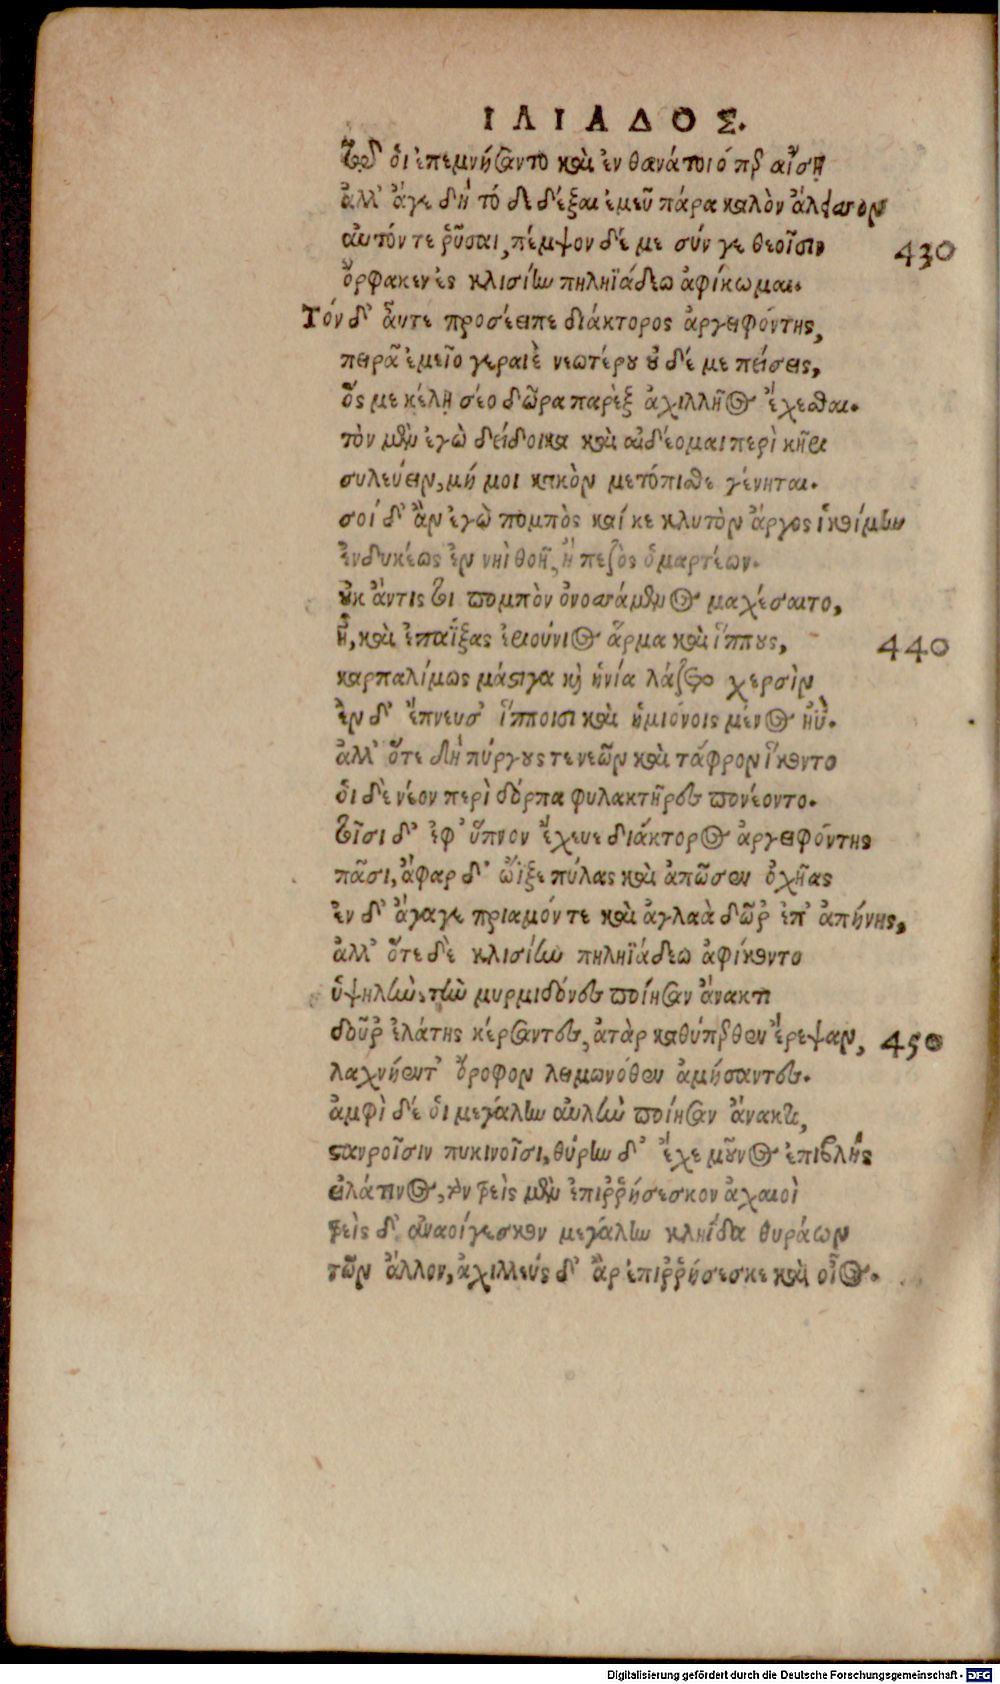 ΙΛΙΑΔΟΣ.
τῷ οἱ ἐπεμνήσαντο καὶ ἐν θανάτοιό περ αἴσῃ
ἀλλ' ἄγε δὴ τόδε δέξαι ἐμεῦ πάρα καλὸν ἄλεισον
αὐτόν τε ῥῦσαι, πέμψον δέ με σύν γε θεοῖσιν 430
ὄφρα κεν ἐς κλισίην πηληϊάδεω ἀφίκωμαι.
Τόν δ' αὖτε προσέειπε διάκτορος ἀργειφόντης,
πειρᾷ ἐμεῖο γεραιὲ νεωτέρου οὐδέ με πείσεις,
ὅς με κέλῃ σέο δῶρα παρὲξ ἀχιλλῆος ἔχεσθαι.
τὸν μὲν ἐγὼ δείδοικα καὶ αἰδέομαι περὶ κῆρι
συλεύειν, μή μοι κακὸν μετόπισθε γένηται.
σοί δ' ἂν ἐγὼ πομπὸς καί κε κλυτὸν ἄργος ἱκοίμην
ἐνδυκέως ἐν νηὶ θοῇ, ἢ πεζὸς ὁμαρτέων.
οὐκ ἄν τις τοι πομπὸν ὀνοσάμενος μαχέσαιτο,
ἦ, καὶ ἐπαΐξας ἐριούνιος ἅρμα καὶ ἵππους, 440
καρπαλίμως μάστιγα καὶ ἡνία λάζετο χερσὶν
ἐν δ' ἔπνευσ' ἵπποισι καὶ ἡμιόνοις μένος ἠΰ.
ἀλλ' ὅτε δὴ πύργους τε νεῶν καὶ τάφρον ἵκοντο
οἱ δὲ νέον περὶ δόρπα φυλακτῆρες πονέοντο.
τοῖσι δ' ἐφ' ὕπνον ἔχευε διάκτορος ἀργειφόντης
πᾶσι, ἄφαρ δ' ὤϊξε πύλας καὶ ἀπῶσεν ὀχῆας
ἐν δ' ἄγαγε πριαμόν τε καὶ ἀγλαὰ δῶρ' ἐπ' ἀπήνης,
ἀλλ' ὅτε δὲ κλισίην πηληϊάδεω ἀφίκοντο
ὑψηλὴν, τὴν μυρμιδόνες ποίησαν ἄνακτι
δοῦρ' ἐλάτης κέρσαντες, ἀτὰρ καθύπερθεν ἔρεψαν, 450
λαχνήεντ' ὄροφον λειμωνόθεν ἀμήσαντες.
ἀμφὶ δέ οἱ μεγάλην αὐλὴν ποίησαν ἄνακτι,
σταυροῖσιν πυκινοῖσι, θύρην δ' ἔχε μοῦνος ἐπιβλὴς
εἰλάτινος, τὸν τρεῖς μὲν ἐπιῤῥήσεσκον ἀχαιοὶ
τρεῖς δ' ἀναοίγεσκον μεγάλην κληΐδα θυράων
τῶν ἄλλον, ἀχιλλεύς δ' ἂρ ἐπιῤῥήσεσκε καὶ οἶος.
Digitalisierung gefördert durch die Deutsche Forschungsgemeinschaft - DFG